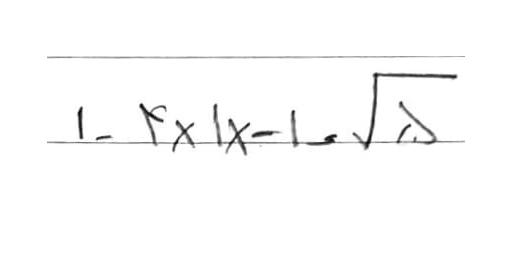 ۱- ۴×۱×-۱ = √۵